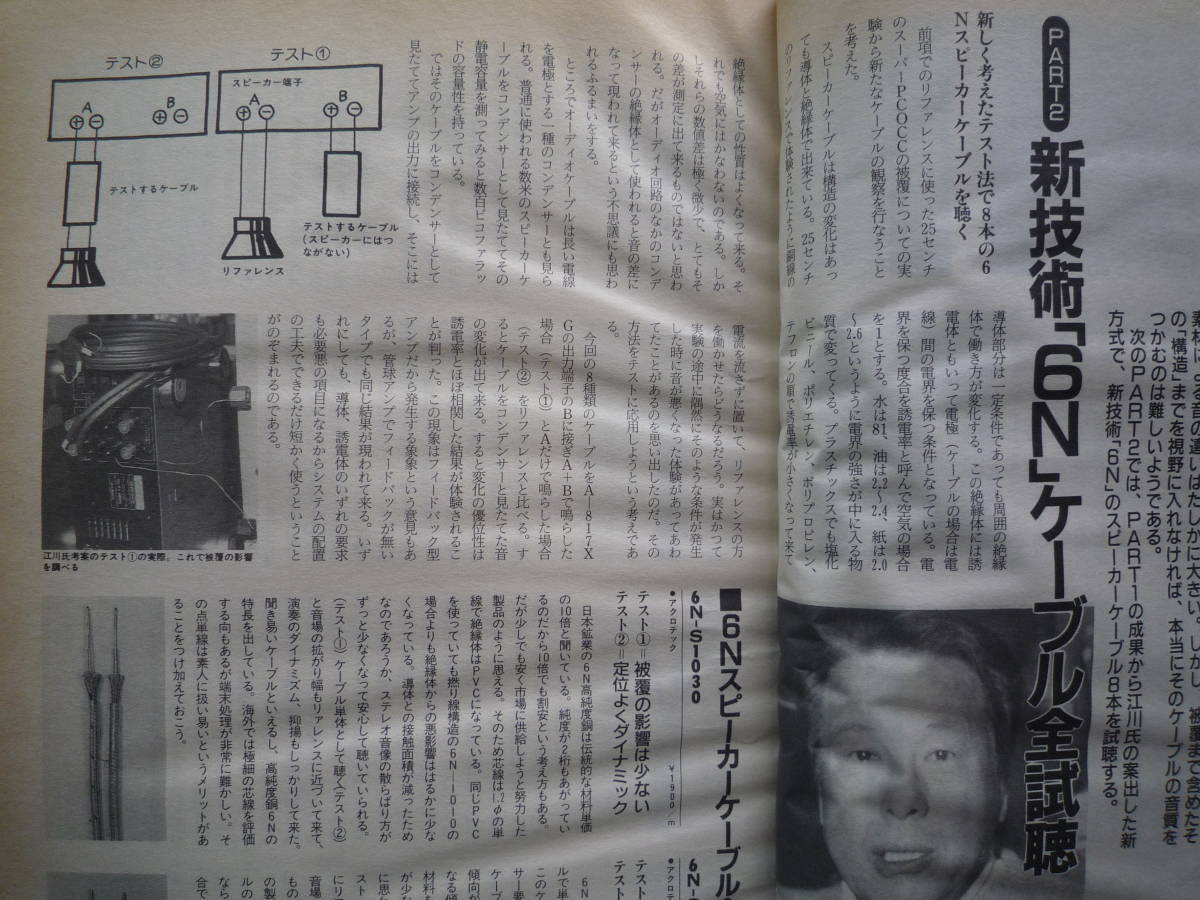 PART2
新技術「6N」ケーブル全試聴
の「構造」までを視野に入れなければ、本当にそのケーブルの音質を
つかむのは難しいようである。
次のPART2では、PART1の成果から江川氏の案出した新
方式で、新技術「6N」のスピーカーケーブル8本を試聴する。
新しく考えたテスト法で8本の6
Nスピーカーケーブルを聴く
前項でのリファレンスに使った25センチ
のスーパーPCOCCの被覆についての実
験から新たなケーブルの観察を行なうこと
を考えた。
スピーカーケーブルは構造の変化はあっ
ても導体と絶縁体で出来ている。25センチ
のリファレンスで体験されたように銅線の
導体部分は一定条件であっても周囲の絶縁
体で働き方が変化する。この絶縁体には誘
電体ともいって電極（ケーブルの場合は電
線）間の電界を保つ条件となっている。電
界を保つ度合を誘電率と呼んで空気の場合
を1とする。水は81、油は2.2～2.4、紙は2.0
～2.6というように電界の強さが中に入る物
質で変ってくる。プラスチックスでも塩化
ビニール、ポリエチレン、ポリプロピレン、
テフロンの順で誘電率が小さくなって来て
絶縁体としての性質はよくなって来る。そ
れでも空気にはかなわないのである。しか
しそれらの数値差は極く微少で、とてもそ
の差が測定に出て来るものではないと思わ
れる。だがオーディオ回路のなかのコンデ
ンサーの絶縁体として使われると音の差に
なって現われて来るという不思議にも思わ
れるふるまいをする。
ところでオーディオケーブルは長い電線
を電極とする一種のコンデンサーとも見ら
れる。普通に使われる数米のスピーカーケ
ーブルをコンデンサーとして見たててその
静電容量を測ってみると数百ピコファラッ
ドの容量性を持っている。
ではそのケーブルをコンデンサーとして
見たててアンプの出力に接続し、そこには
電流を流さずに置いて、リファレンスの方
を働かせたらどうなるだろう。実はかつて
実験の途中に偶然にそのような条件が発生
した時に音が悪くなった体験があってあわ
てたことがあるのを思い出したのだ。その
方法をテストに応用しようという考えであ
る。
今回の8種類のケーブルをA-817X
Gの出力端子のBに接ぎA+Bで鳴らした
場合（テスト①）とAだけで鳴らした場合
（テスト②）をリファレンスと比べる。す
るとケーブルをコンデンサーと見たてた音
の変化が出て来る。すると変化の優位性は
誘電率とほぼ相関した結果が体験されるこ
とが判った。この現象はフィードバック型
アンプだから発生する象象という意見もあ
るが、管球アンプでフィードバックが無い
タイプでも同じ結果が現われて来る。いず
れにしても、導体、誘電体のいずれの要求
も必要悪の項目になるからシステムの配置
の工夫でできるだけ短かく使うということ
がのぞまれるのである。
テスト①
スピーカー端子
A
B
テストするケーブル
(スピーカーにはつ
ながない)
リファレンス
テスト②
A
B
テストするケーブル
江川氏考案のテスト①の実際。これで被覆の影響
を調べる
■6Nスピーカーケーブル
●アクロテック
6N-S1030
￥1900/m
テスト①=被覆の影響は少ない
テスト②=定位よくダイナミック
日本鉱業の6N高純度銅は伝統的な材料単価
の10倍と聞いている。純度が2桁もあがってい
るのだから10倍でも割安という考え方もある。
だが少しでも安く市場に供給しようと努力した
製品のように思える。そのため芯線は1.2φの単
線で絶縁体はPVCになっている。同じPVC
を使っていても撚り線構造の6N-1010の
場合よりも絶縁体からの悪影響ははるかに少な
くなっている。導体との接触面積が減ったため
なのであろうか、ステレオ音像の散らばり方が
ずっと少なくなって安心して聴いていられる。
（テスト①）ケーブル単体として聴く（テスト②）
と音場の拡がり幅もリファレンスに近づいて来て、
演奏のダイナミズム、抑揚もしっかりして来た。
聞き易いケーブルといえるし、高純度銅6Nの
特長を出している。海外では極細の芯線を評価
する向もあるが端末処理が非常に難かしい。そ
の点単線は素人に扱い易いというメリットがあ
ることをつけ加えておこう。
●アクロテ
テスト
テスト